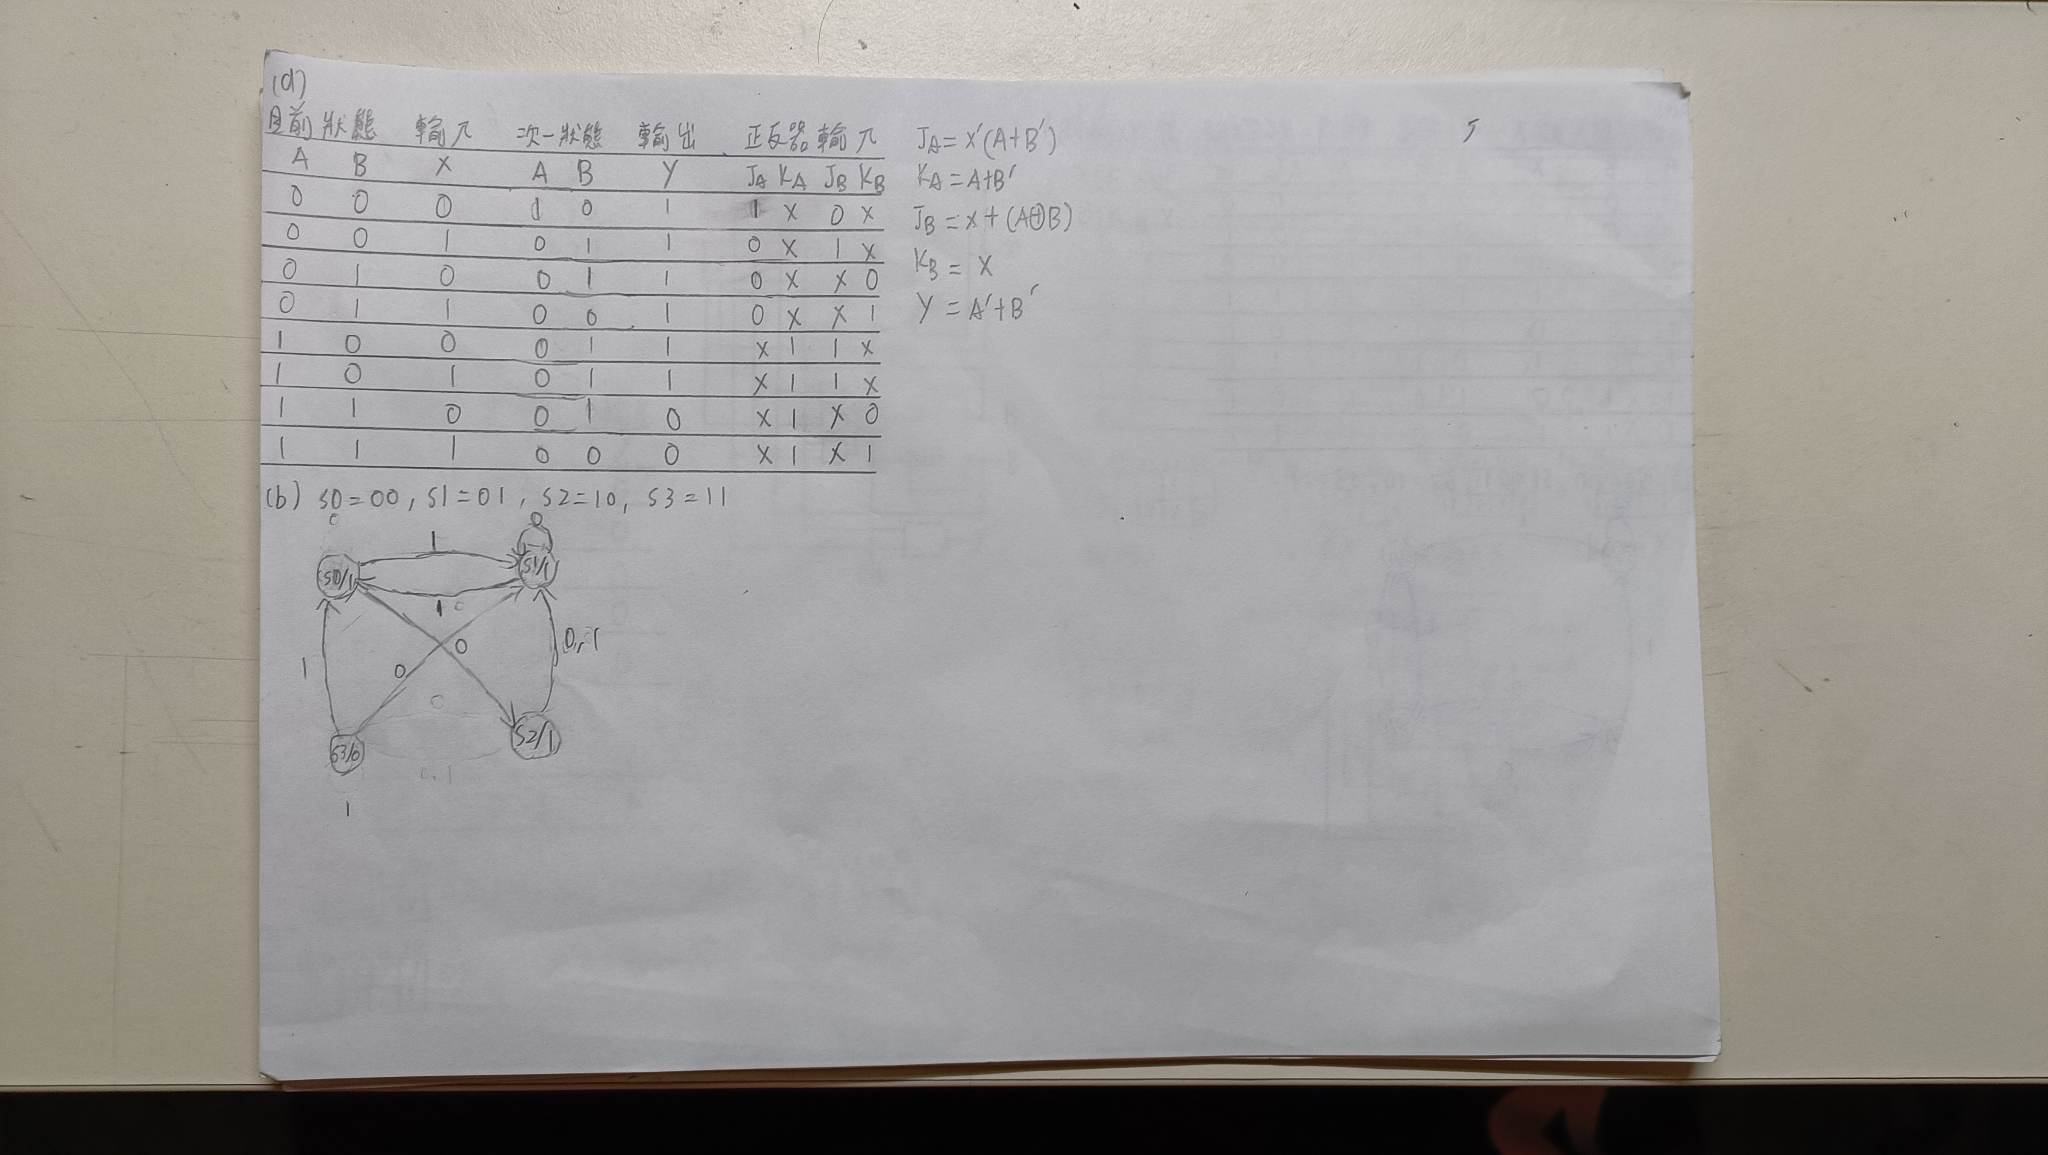 (a)
目前狀態 輸入 次一狀態 輸出 正反器輸入
A B X A B Y JA KA JB KB
0 0 0 1 0 1 1 X 0 X
0 0 1 0 1 1 0 X 1 X
0 1 0 0 1 1 0 X X 0
0 1 1 0 0 1 0 X X 1
1 0 0 0 1 1 X 1 1 X
1 0 1 0 1 1 X 1 1 X
1 1 0 0 1 0 X 1 X 0
1 1 1 0 0 0 X 1 X 1
JA = x'(A+B')
KA = A+B'
JB = x+(A⊕B)
KB = X
Y = A'+B'
(b) S0=00, S1=01, S2=10, S3=11
0
1
0
S0/1
S1/1
1
0
0,1
1
0
S3/0
S2/1
1